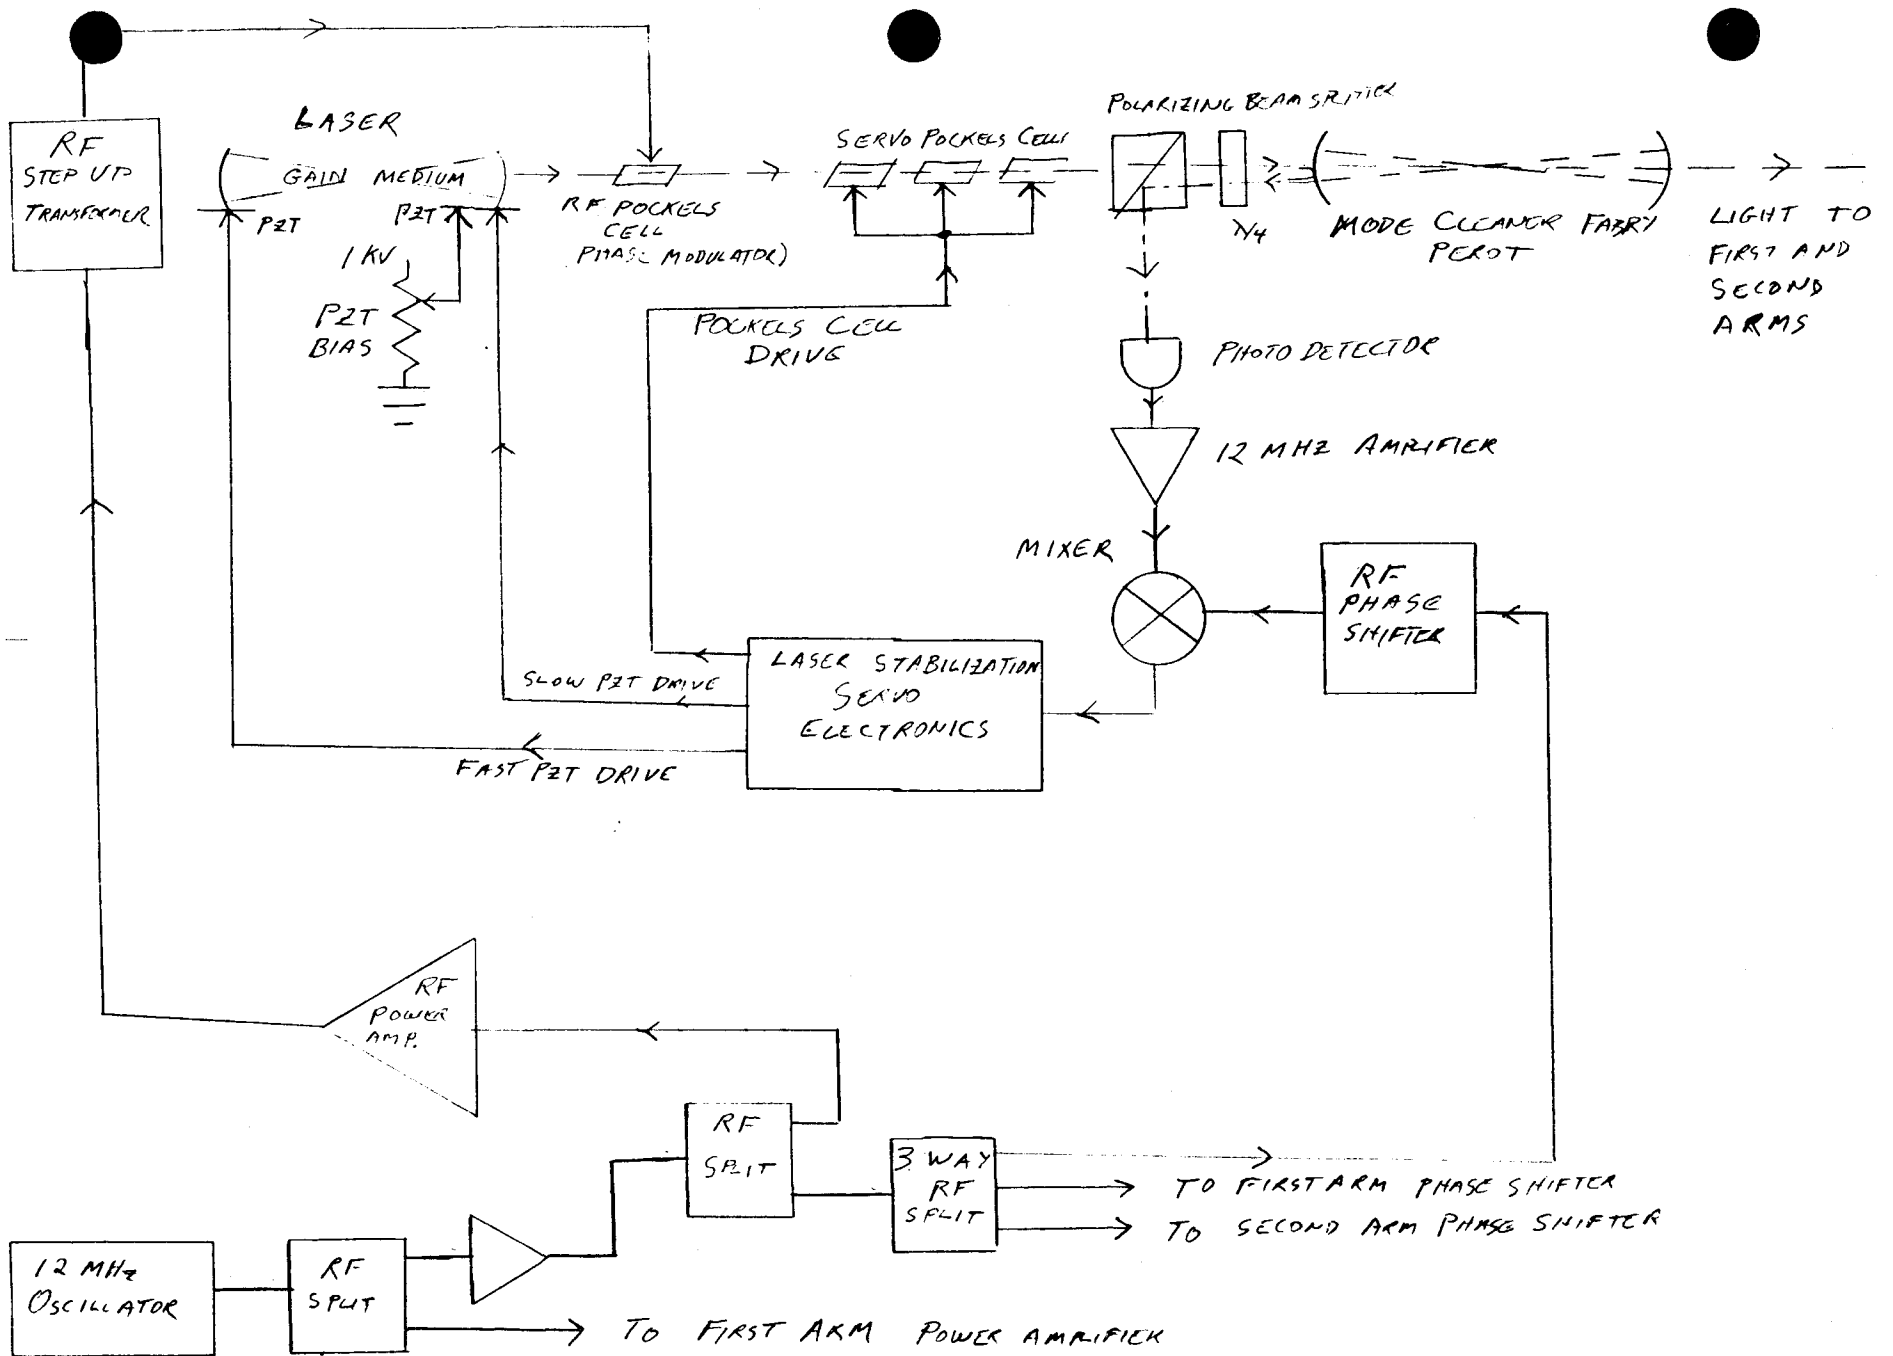 RF
STEP UP
TRANSFORMER
LASER
GAIN MEDIUM
PZT
PZT
1 KV
PZT
BIAS
RF POCKELS
CELL
PHASE MODULATOR)
SERVO POCKELS CELLS
POLARIZING BEAM SPLITTER
λ/4
MODE CLEANER FABRY
PEROT
LIGHT TO
FIRST AND
SECOND
ARMS
POCKELS CELL
DRIVE
PHOTO DETECTOR
12 MHZ AMPLIFIER
MIXER
RF
PHASE
SHIFTER
LASER STABILIZATION
SERVO
ELECTRONICS
SLOW PZT DRIVE
FAST PZT DRIVE
RF
POWER
AMP.
RF
SPLIT
3 WAY
RF
SPLIT
TO FIRST ARM PHASE SHIFTER
TO SECOND ARM PHASE SHIFTER
12 MHz
OSCILLATOR
RF
SPLIT
TO FIRST ARM POWER AMPLIFIER